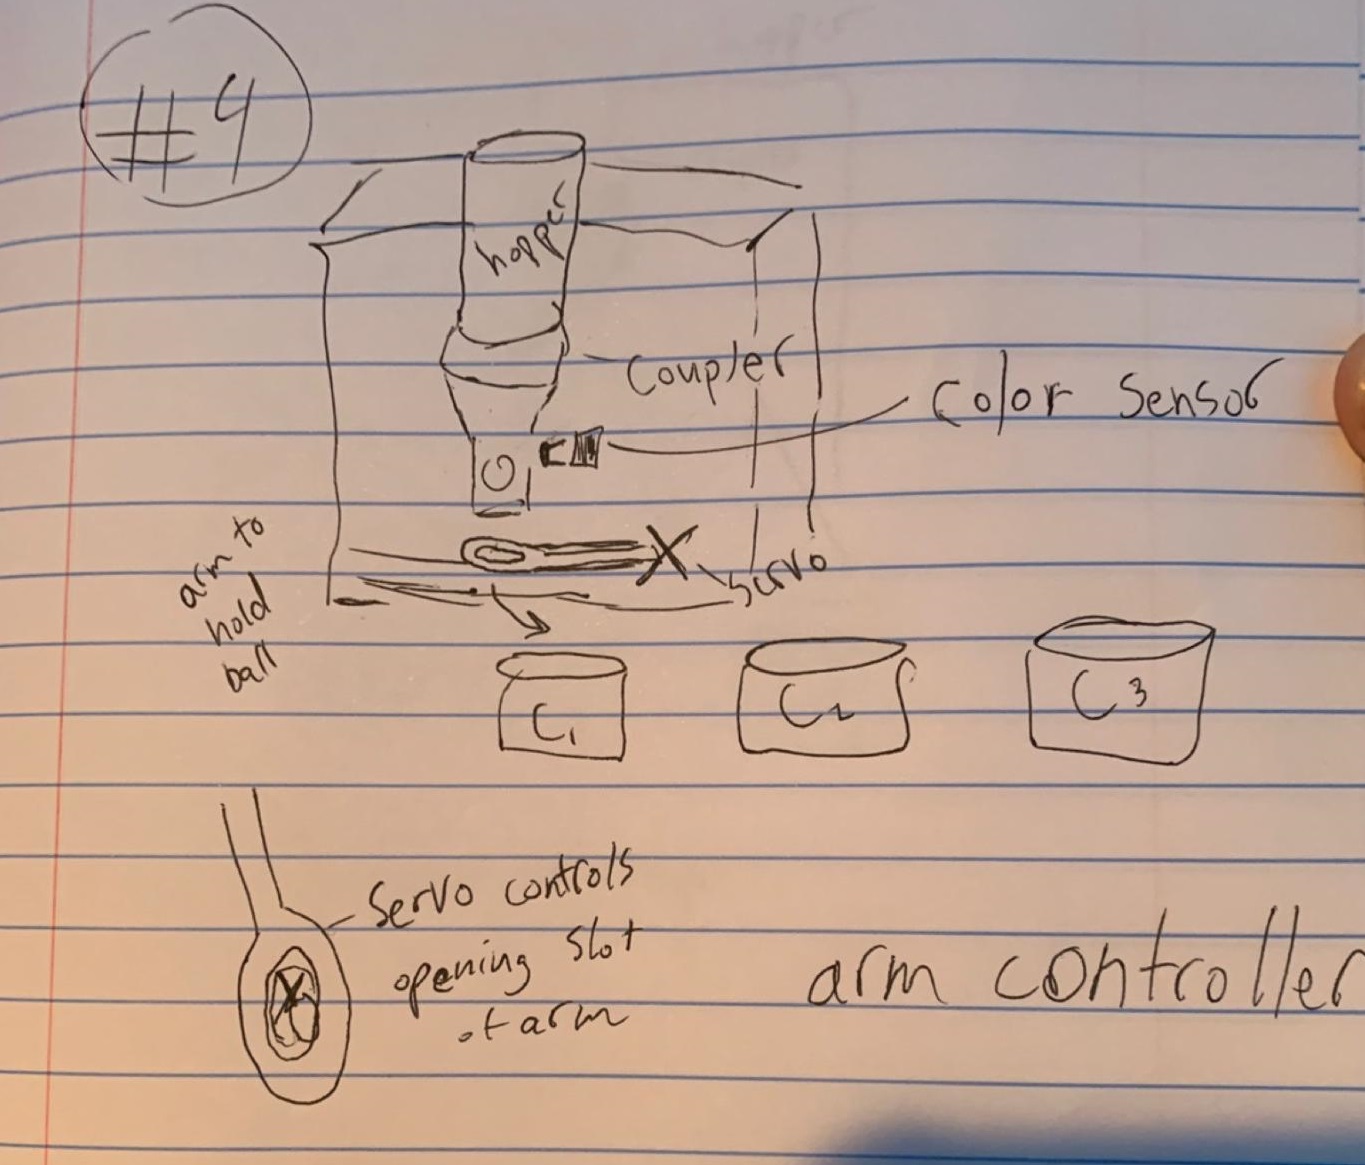 #4
hopper
Coupler
Color Sensor
arm to
hold
ball
Servo
C1
C2
C3
Servo controls
opening slot
of arm
arm controller